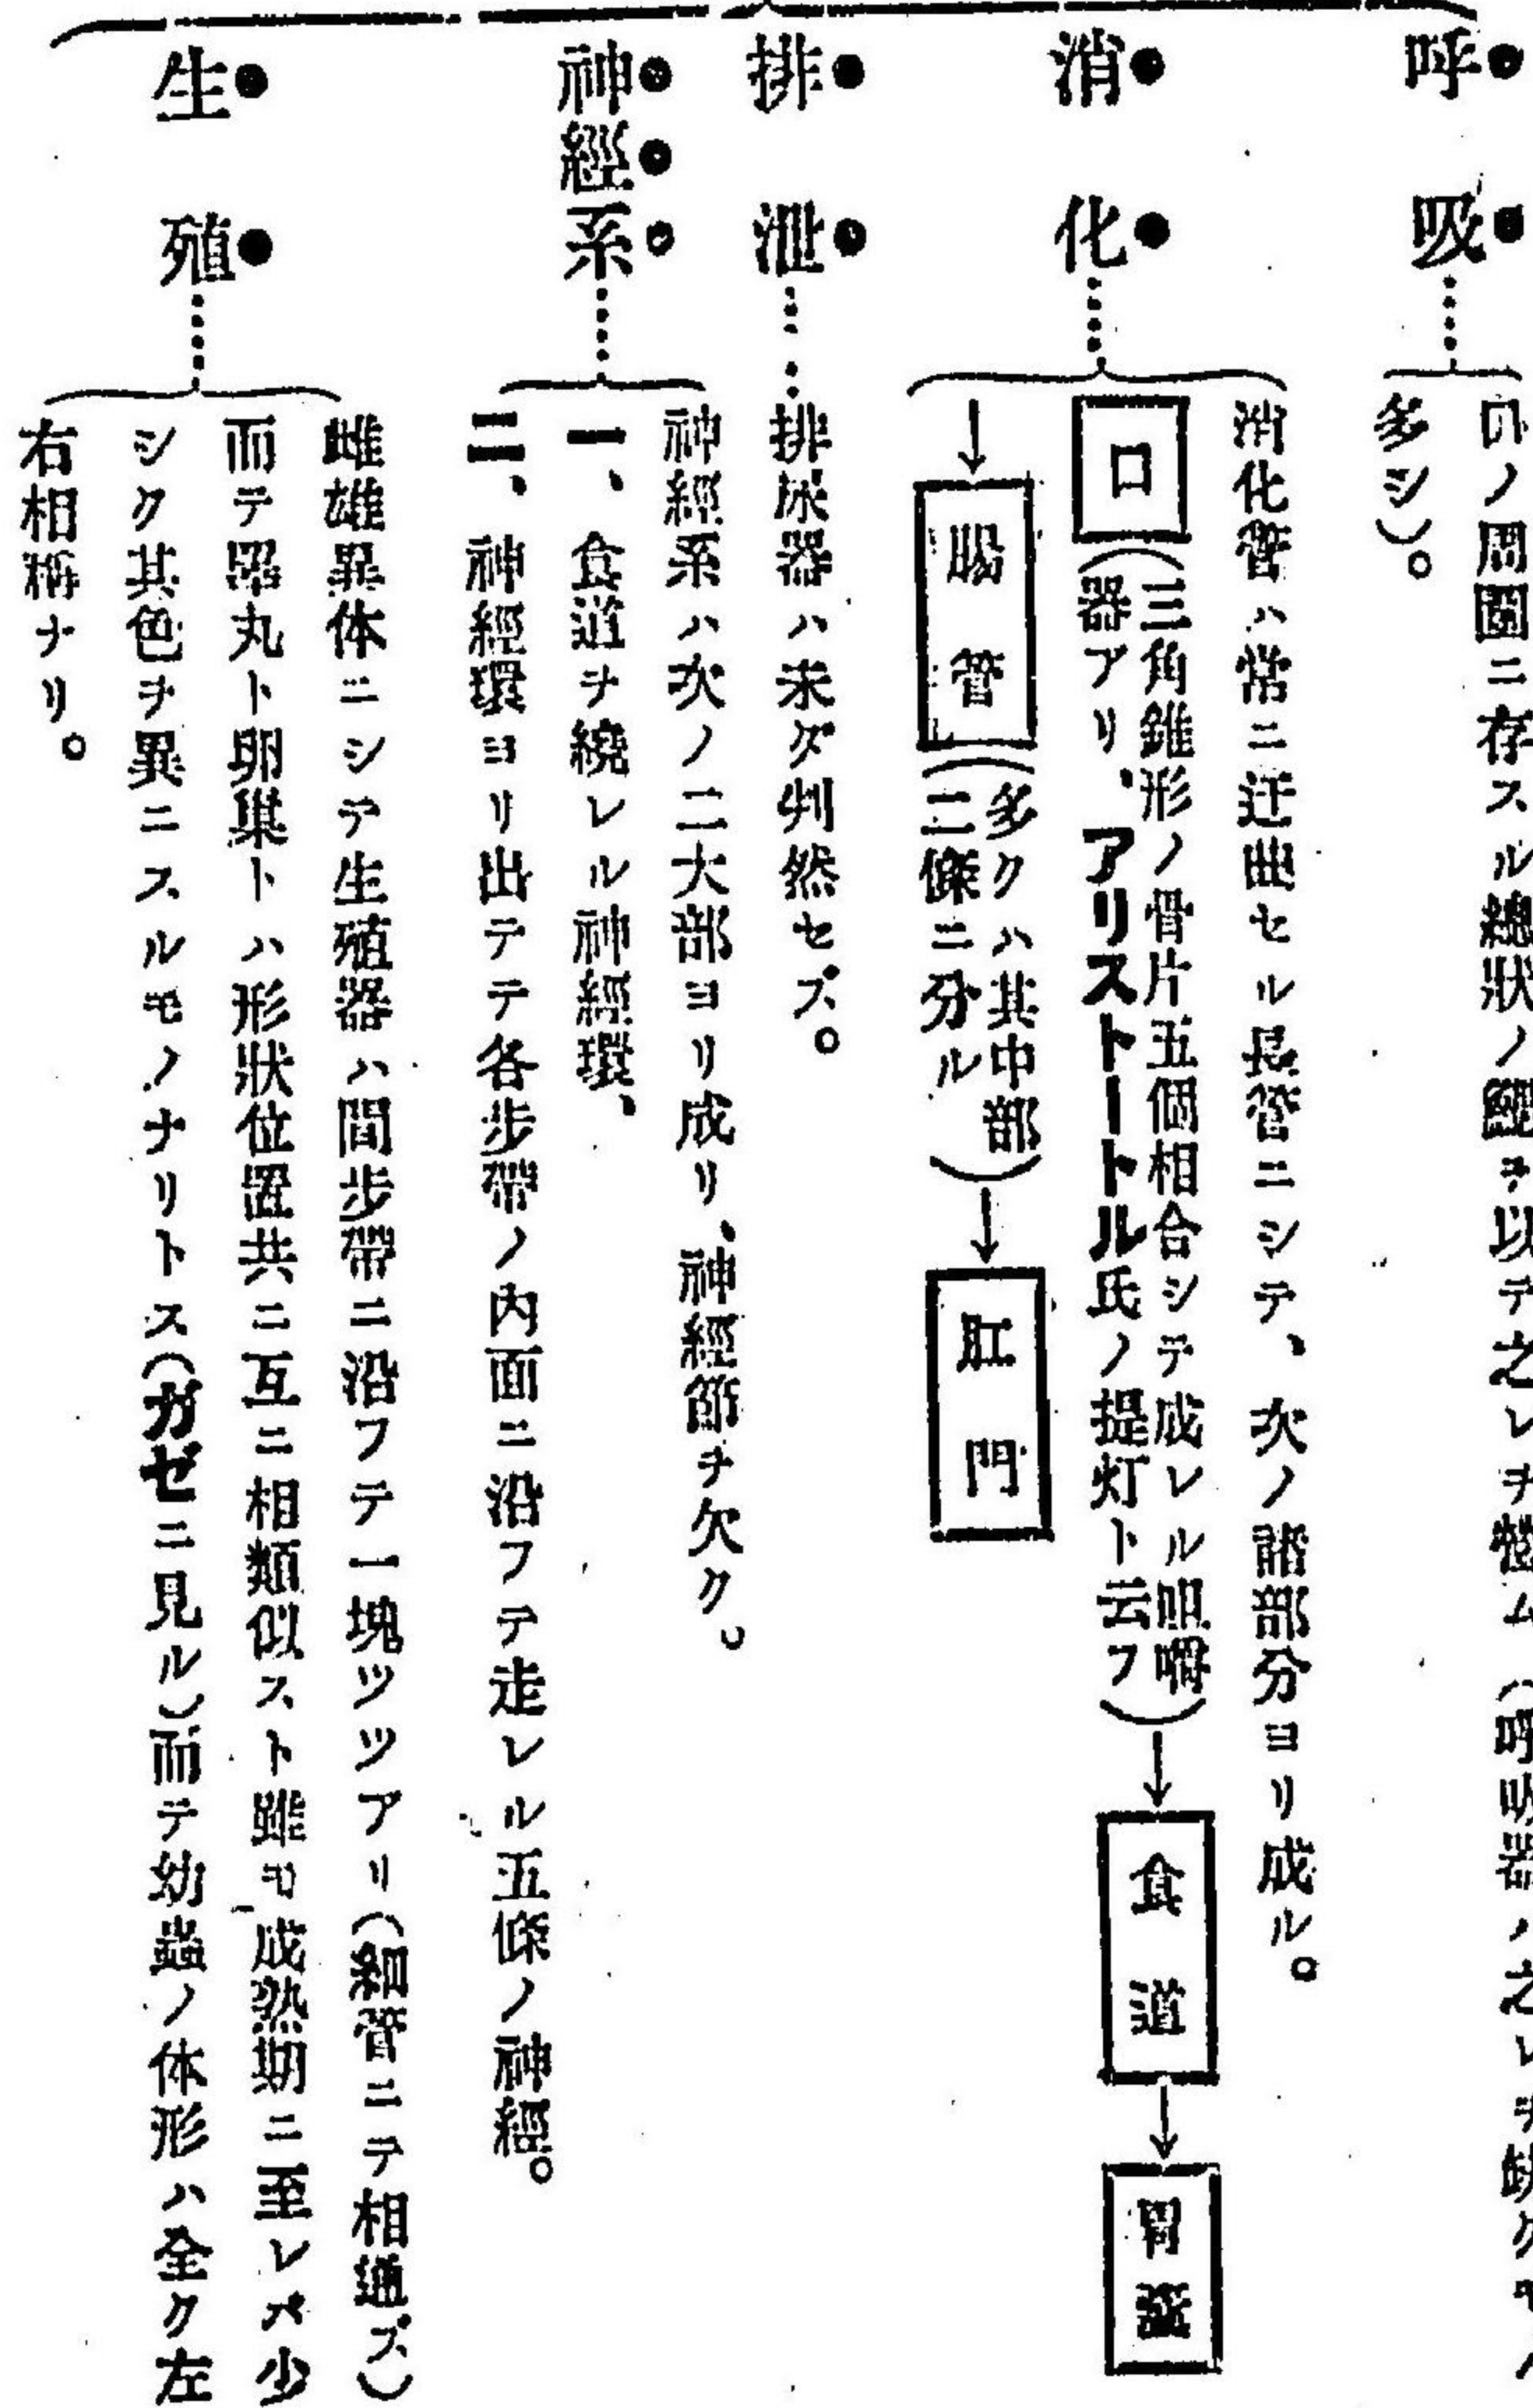 呼吸……
口ノ周圍ニ存スル總狀ノ鰓ヲ以テ之レヲ營ム(呼吸器ハ之レヲ缺クモノ
多シ)。
消化……
消化管ハ常ニ迂曲セル長管ニシテ、次ノ諸部分ヨリ成ル。
口(三角錐形ノ骨片五個相合シテ成レル咀嚼
器アリ、アリストートル氏ノ提灯ト云フ)→食道→胃
→腸管(多クハ其中部
二條ニ分ル)→肛門
排泄……排尿器ハ未ダ判然セズ。
神經系……
神經系ハ次ノ二大部ヨリ成リ、神經節ヲ欠ク。
一、食道ヲ繞レル神經環、
二、神經環ヨリ出テテ各步帶ノ內面ニ沿フテ走レル五條ノ神經。
生殖……
雌雄異体ニシテ生殖器ハ間步帶ニ沿フテ一塊ツツアリ(細管ニテ相通ズ)
而テ睾丸ト卵巢トハ形狀位置共ニ互ニ相類似スト雖モ成熟期ニ至レバ少
シク其色ヲ異ニスルモノナリトス(ガゼニ見ル)而テ幼蟲ノ体形ハ全ク左
右相稱ナリ。